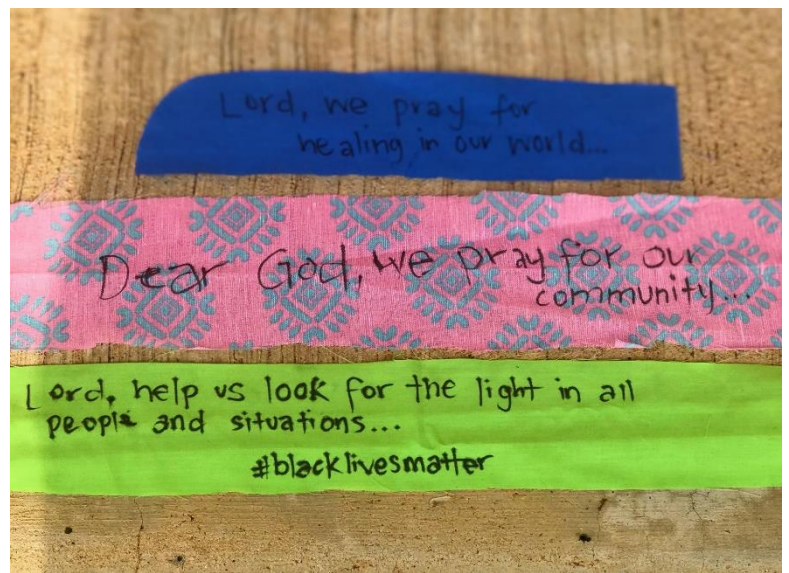 Lord, we pray for
healing in our world...
Dear God, we pray for our
community...
Lord, help us look for the light in all
people and situations...
#blacklivesmatter